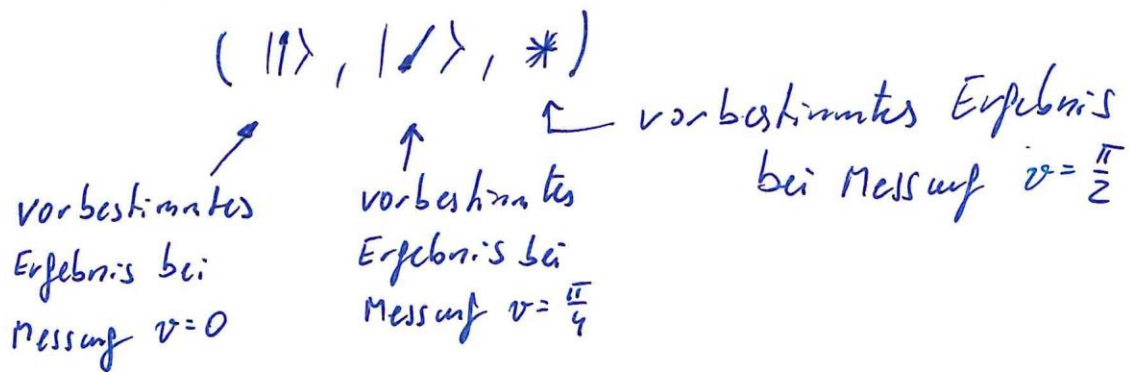 ( |↑⟩ , |↙⟩ , * )
vorbestimmtes Ergebnis
bei Messung ϑ = π/2
vorbestimmtes
Ergebnis bei
Messung ϑ = 0
vorbestimmtes
Ergebnis bei
Messung ϑ = π/4